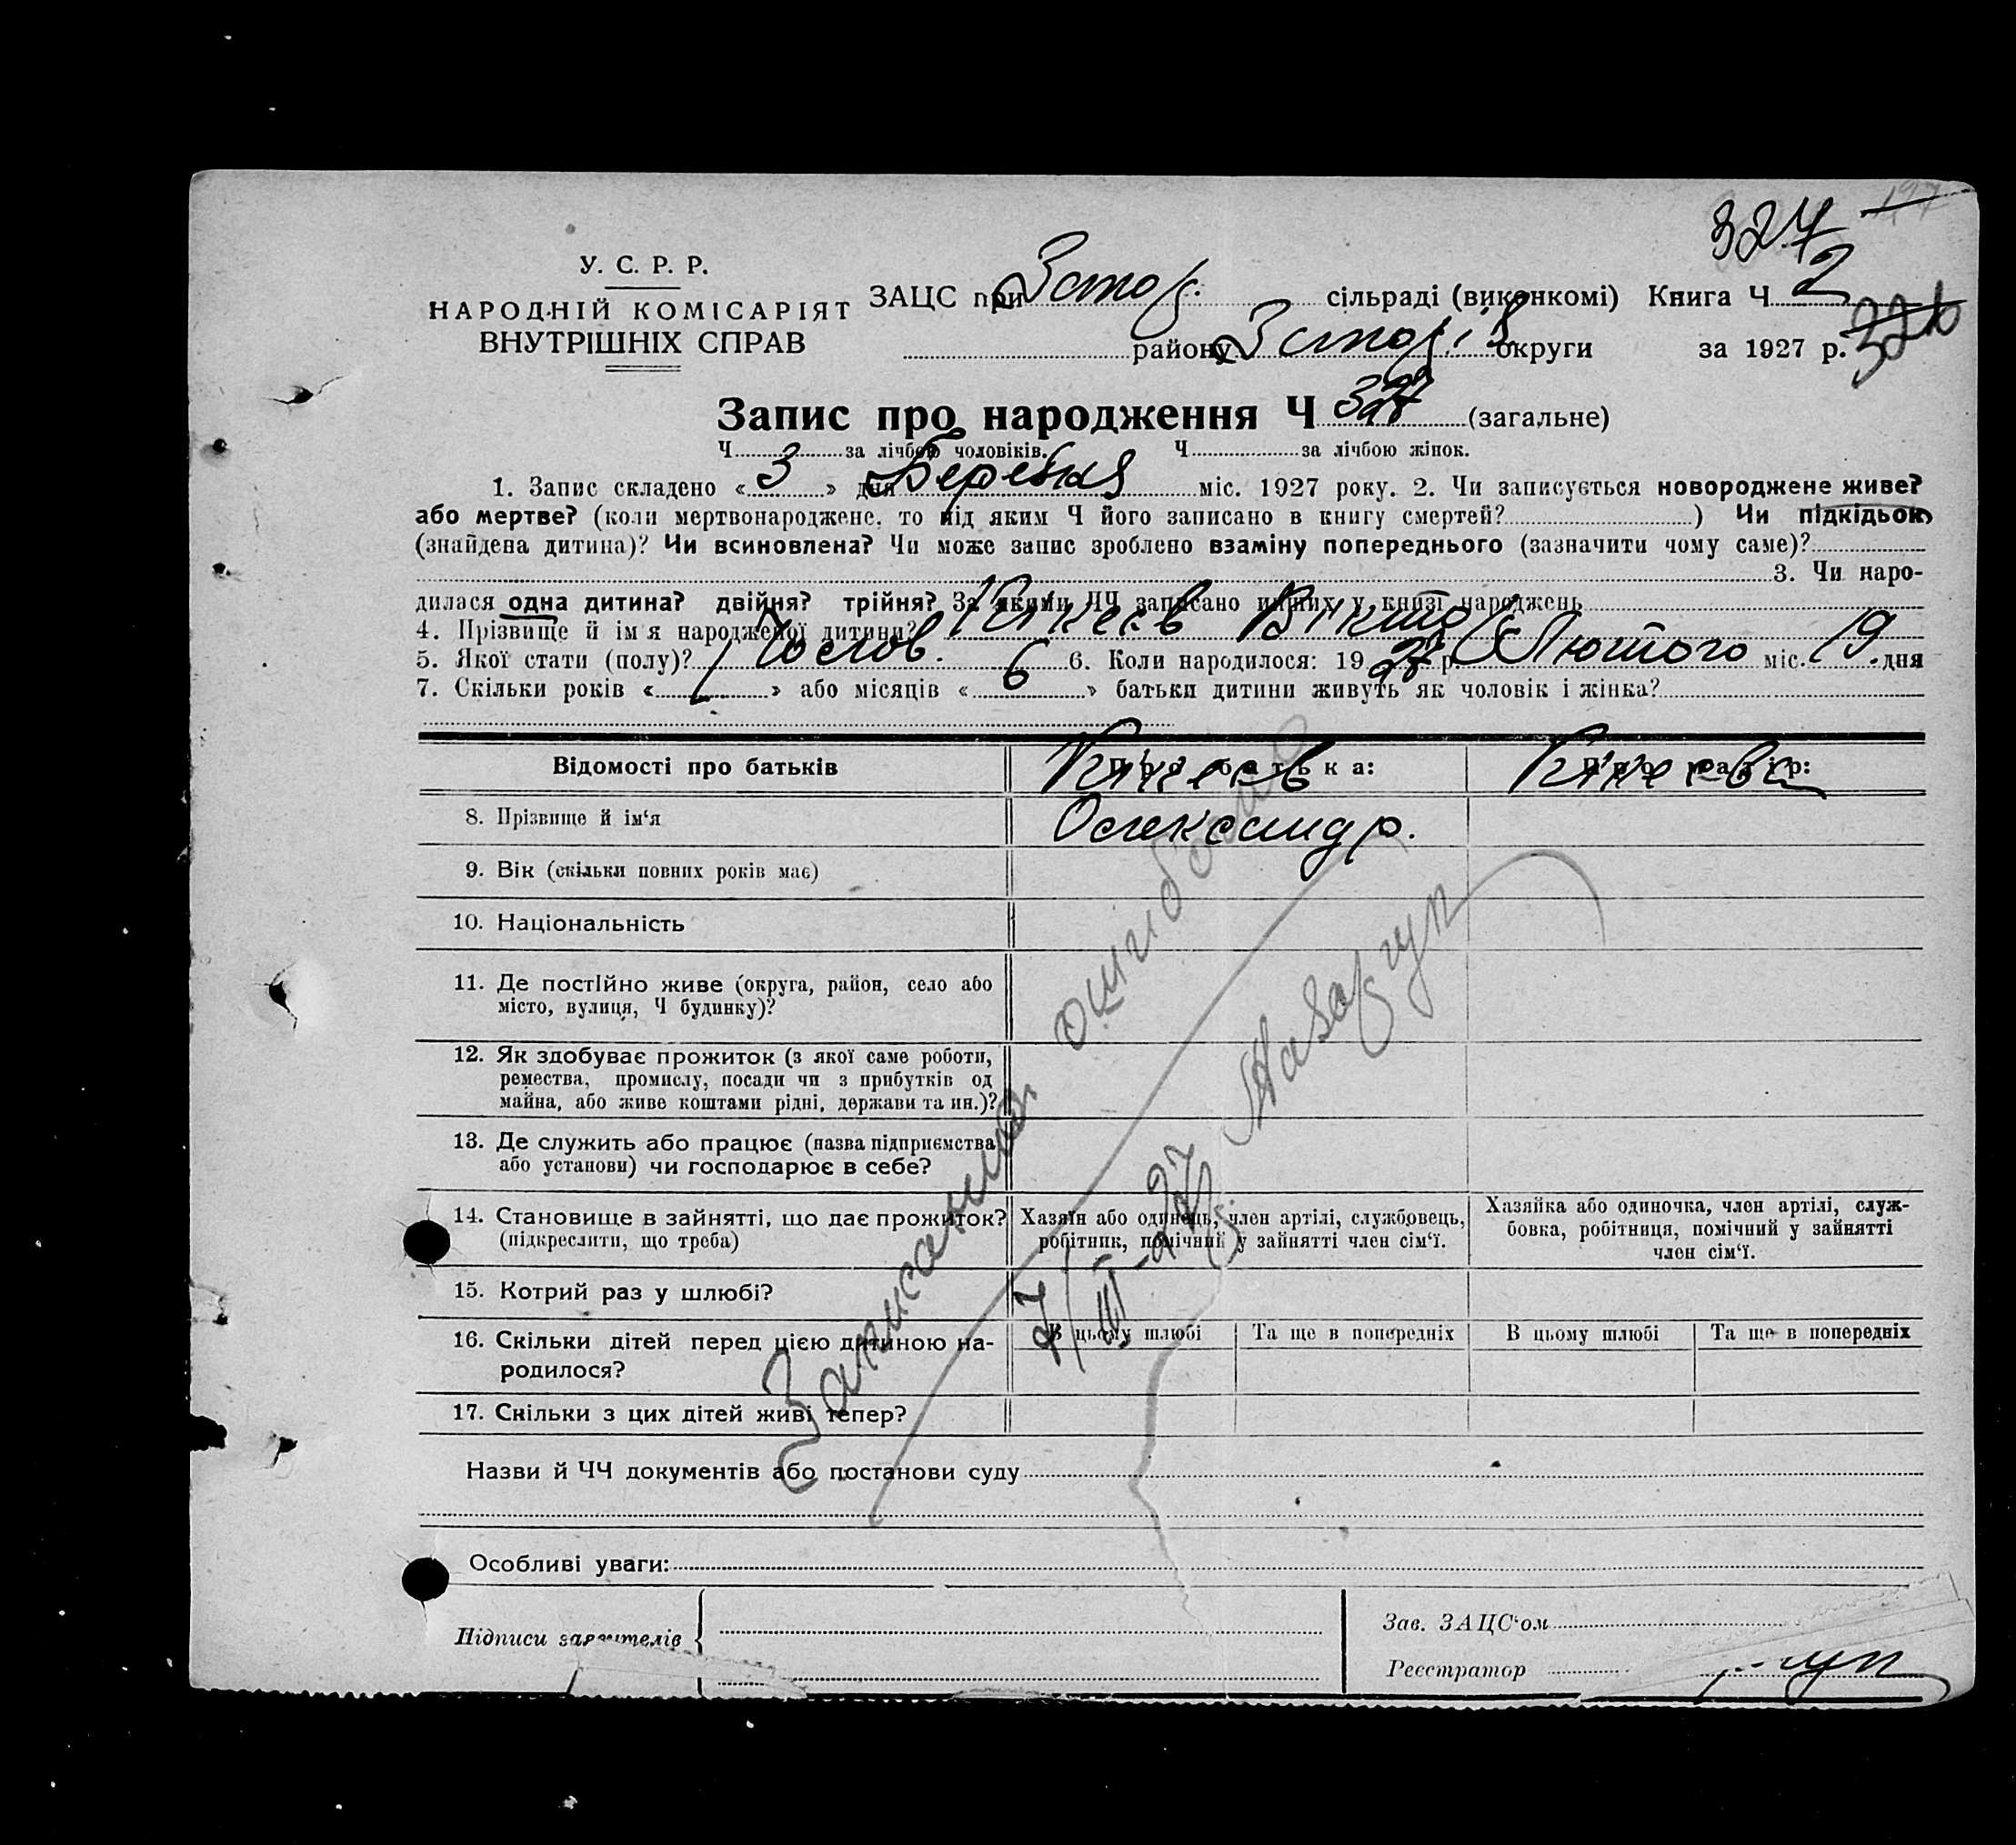 327
У. С. Р. Р.
НАРОДНІЙ КОМІСАРІЯТ
ВНУТРІШНІХ СПРАВ
ЗАЦС при Запор. сільраді (виконкомі) Книга Ч 2
району Запоріз округи за 1927 р.
Запис про народження Ч 327 (загальне)
Ч за лічбою чоловіків. Ч за лічбою жінок.
1. Запис складено « 3 » дня Березня міс. 1927 року. 2. Чи записується новороджене живе?
або мертве? (коли мертвонароджене, то під яким Ч його записано в книгу смертей? ) Чи підкідьок
(знайдена дитина)? Чи всиновлена? Чи може запис зроблено взаміну попереднього (зазначити чому саме)?
3. Чи наро-
дилася одна дитина? двійня? трійня? За якими ЧЧ записано инших у книзі народжень
4. Прізвище й ім'я народженої дитини?
5. Якої стати (полу)? Чолов. 6. Коли народилося: 1927 р. Лютого міс. 19 дня
7. Скільки років « 1 » або місяців « 6 » батьки дитини живуть як чоловік і жінка?
Відомості про батьків
Про батька:
Про матір:
8. Прізвище й ім'я
Олександр.
9. Вік (скільки повних років має)
10. Національність
11. Де постійно живе (округа, район, село або
місто, вулиця, Ч будинку)?
12. Як здобуває прожиток (з якої саме роботи,
ремества, промислу, посади чи з прибутків од
майна, або живе коштами рідні, держави та ин.)?
13. Де служить або працює (назва підприємства
або установи) чи господарює в себе?
14. Становище в зайнятті, що дає прожиток?
(підкреслити, що треба)
Хазяїн або одинець, член артілі, службовець,
робітник, помічний у зайнятті член сім'ї.
Хазяйка або одиночка, член артілі, служ-
бовка, робітниця, помічний у зайнятті
член сім'ї.
15. Котрий раз у шлюбі?
16. Скільки дітей перед цією дитиною на-
родилося?
В цьому шлюбі Та ще в попередніх В цьому шлюбі Та ще в попередніх
17. Скільки з цих дітей живі тепер?
Записанна ошибочно
7/III-27
Назви й ЧЧ документів або постанови суду
Особливі уваги:
Підписи заявителів
Зав. ЗАЦС'ом
Реєстратор